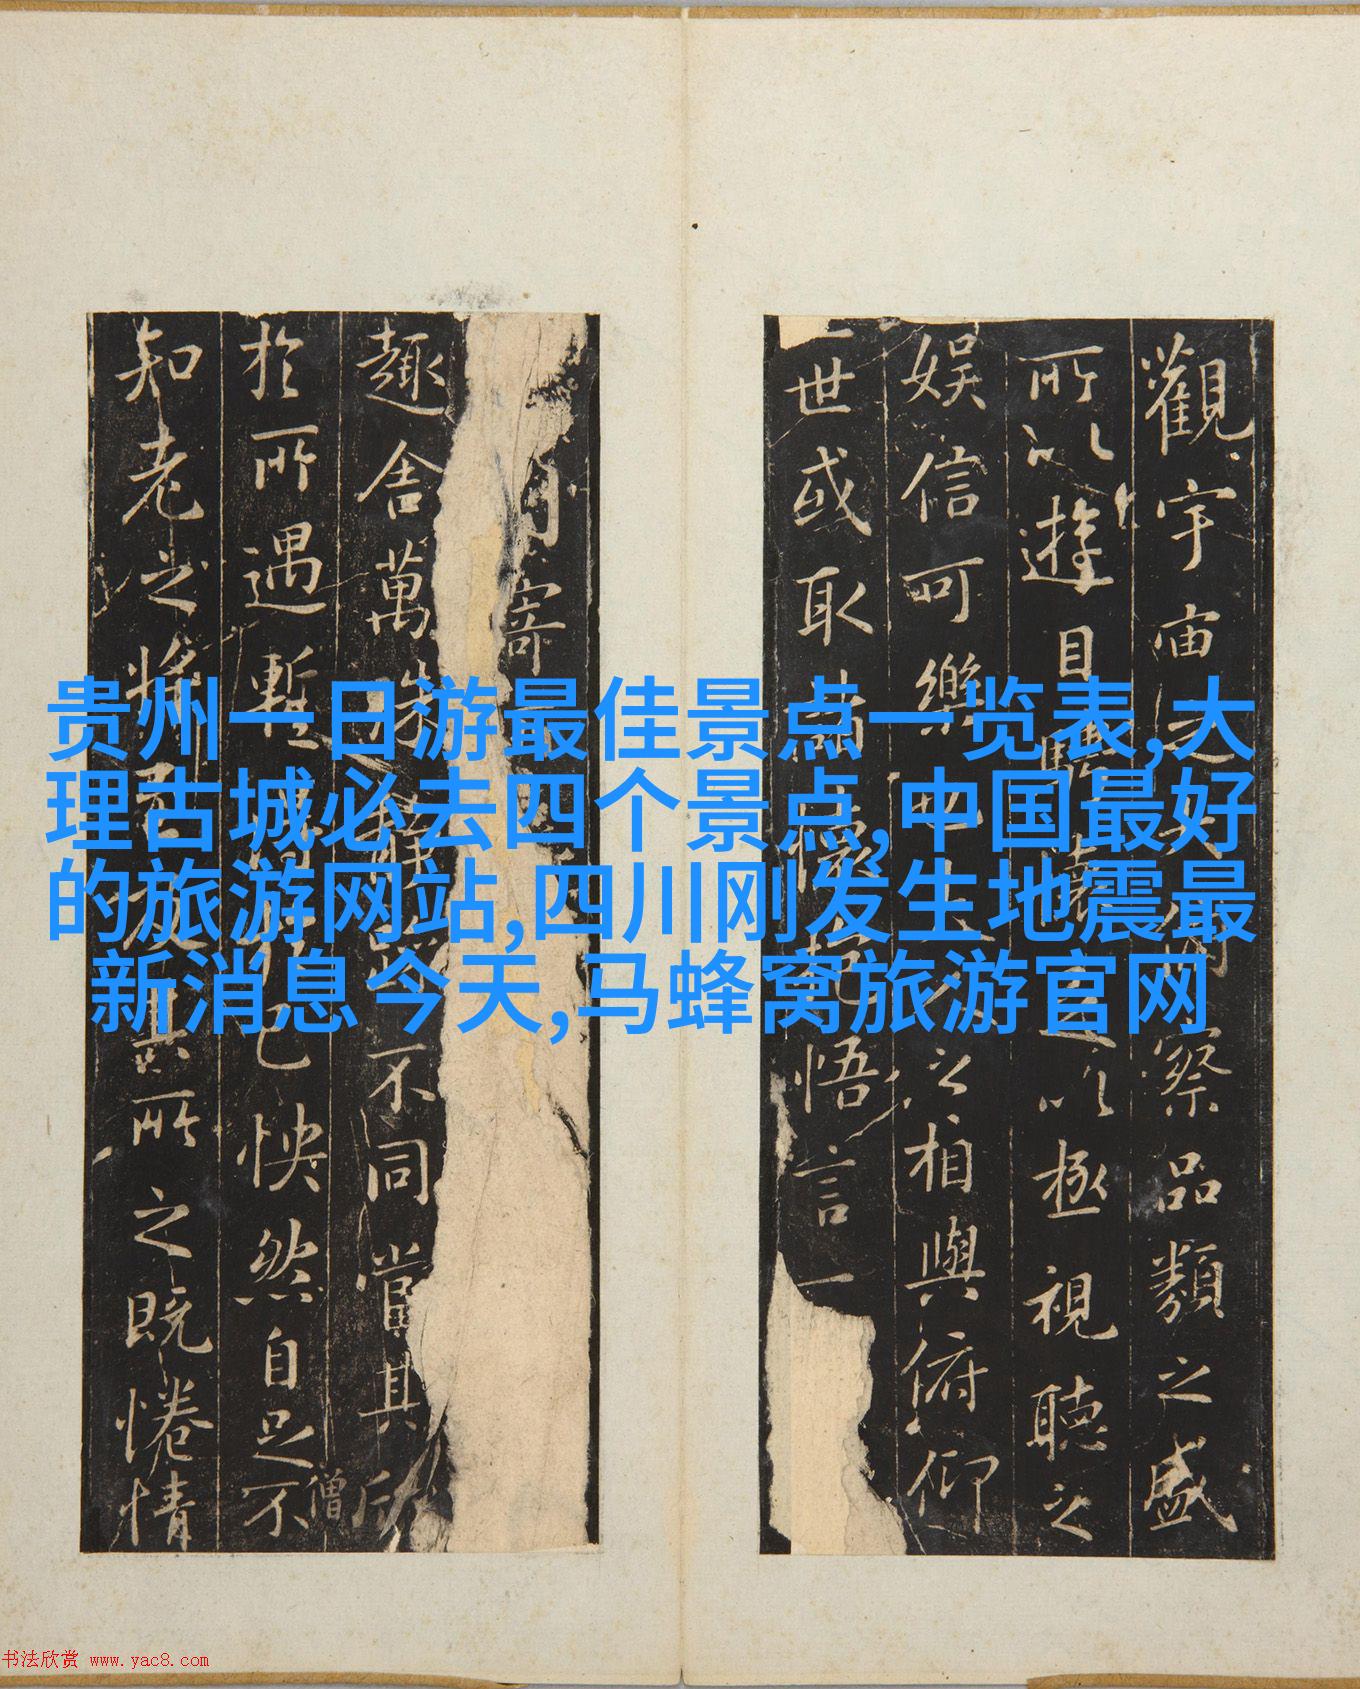 贵州一日游最佳景点一览表,大
理古城必去四个景点,中国最好
的旅游网站,四川刚发生地震最
新消息今天,马蜂窝旅游官网
觀宇宙察品類之盛
所以遊目騁以極視聽之
娛信可樂也之相與俯仰
世或取諸懷悟言一
寄
趣舍萬殊不同當其欣
僧
於所遇暫己怏然自足不
知老之將其所之既惓情
书法欣赏 www.yac8.com